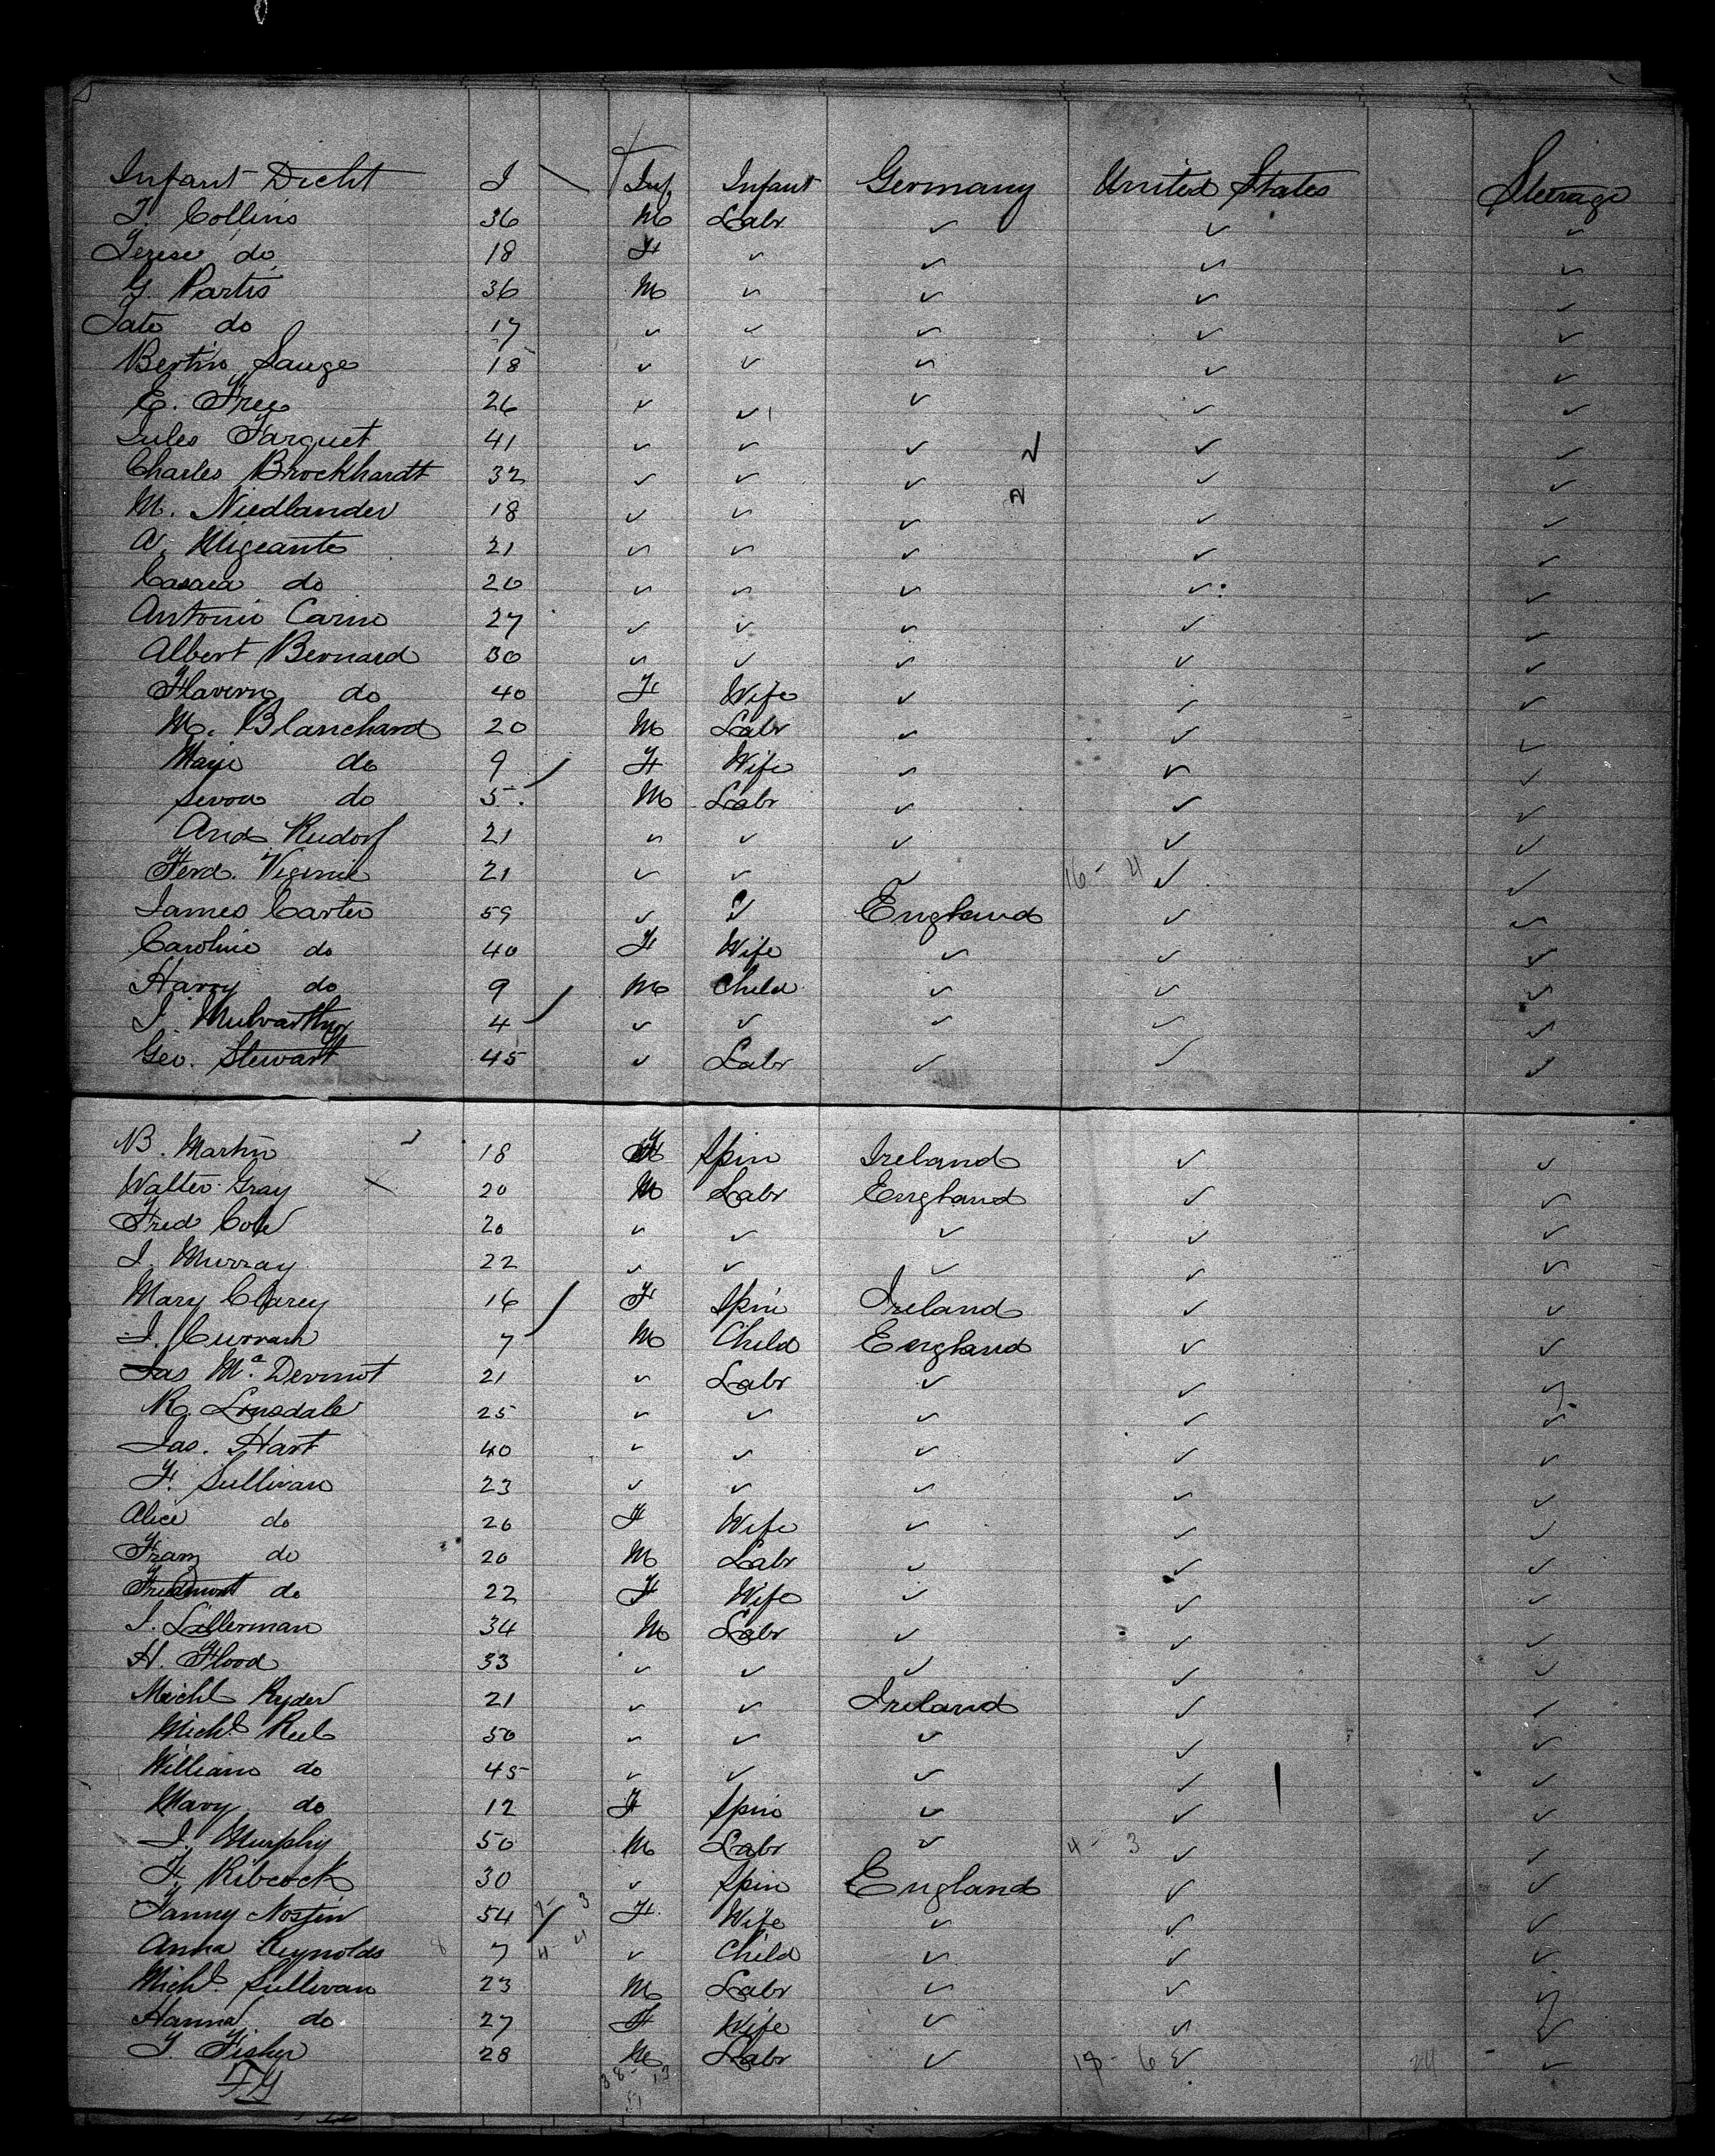 Infant Dicht I Inf. Infant Germany United States Steerage
T. Collins 36 M Labr ✓ ✓ ✓
Terese do 18 F ✓ ✓ ✓ ✓
G. Partis 36 M ✓ ✓ ✓ ✓
Tate do 17 ✓ ✓ ✓ ✓ ✓
Bertin Sauge 18 ✓ ✓ ✓ ✓ ✓
E. Frey 26 ✓ ✓ ✓ ✓ ✓
Jules Farquet 41 ✓ ✓ ✓ ✓ ✓
Charles Brockhardt 32 ✓ ✓ ✓ ✓ ✓
M. Niedlander 18 ✓ ✓ ✓ ✓ ✓
A. Migeante 21 ✓ ✓ ✓ ✓ ✓
Casaea do 20 ✓ ✓ ✓ ✓ ✓
Antonio Carino 27 ✓ ✓ ✓ ✓ ✓
Albert Bernard 30 ✓ ✓ ✓ ✓ ✓
Flavern do 40 F Wife ✓ ✓ ✓
M. Blanchard 20 M Labr ✓ ✓ ✓
Marie do 9 F Wife ✓ ✓ ✓
do 5 M Labr ✓ ✓ ✓
And Rudorf 21 ✓ ✓ ✓ ✓ ✓
Ferd. Viginie 21 ✓ ✓ ✓ 16 - 4 ✓ ✓
James Carter 59 ✓ ✓ England ✓ ✓
Caroline do 40 F Wife ✓ ✓ ✓
Harry do 9 M Child ✓ ✓ ✓
J. 4 ✓ ✓ ✓ ✓ ✓
Geo. Stewart 45 ✓ Labr ✓ ✓ ✓
B. Martin 18 F Spin Ireland ✓ ✓
Walter Gray 20 M Labr England ✓ ✓
Fred Cole 20 ✓ ✓ ✓ ✓ ✓
J. Murray 22 ✓ ✓ ✓ ✓ ✓
Mary Clarey 16 F Spin Ireland ✓ ✓
J. Curran 7 M Child England ✓ ✓
Jas Mc. Dermot 21 ✓ Labr ✓ ✓ ✓
R. Lonsdale 25 ✓ ✓ ✓ ✓ ✓
Jas. Hart 40 ✓ ✓ ✓ ✓ ✓
F. Sullivan 23 ✓ ✓ ✓ ✓ ✓
Alice do 20 F Wife ✓ ✓ ✓
Franz do 20 M Labr ✓ ✓ ✓
do 22 F Wife ✓ ✓ ✓
J. Lillerman 34 M Labr ✓ ✓ ✓
H. Flood 33 ✓ ✓ ✓ ✓ ✓
Michl Ryder 21 ✓ ✓ Ireland ✓ ✓
Michl Reel 50 ✓ ✓ ✓ ✓ ✓
William do 45 ✓ ✓ ✓ ✓ ✓
Mary do 12 F Spin ✓ ✓ ✓
J. Murphy 50 M Labr ✓ 4 - 3 ✓ ✓
F. Ribcock 30 ✓ Spin England ✓ ✓
Fanny Nostin 54 2 - 3 F Wife ✓ ✓ ✓
Anna Reynolds 8 7 4 - 4 ✓ Child ✓ ✓ ✓
Michl Sullivan 23 M Labr ✓ ✓ ✓
Hanna do 27 F Wife ✓ ✓ ✓
J. Fisher 28 M Labr ✓ 18 - 6 ✓ 24 ✓
38 - 13
51